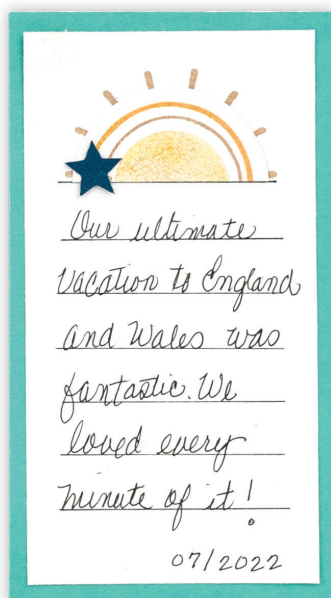 Our ultimate
vacation to England
and Wales was
fantastic. We
loved every
minute of it!
07/2022